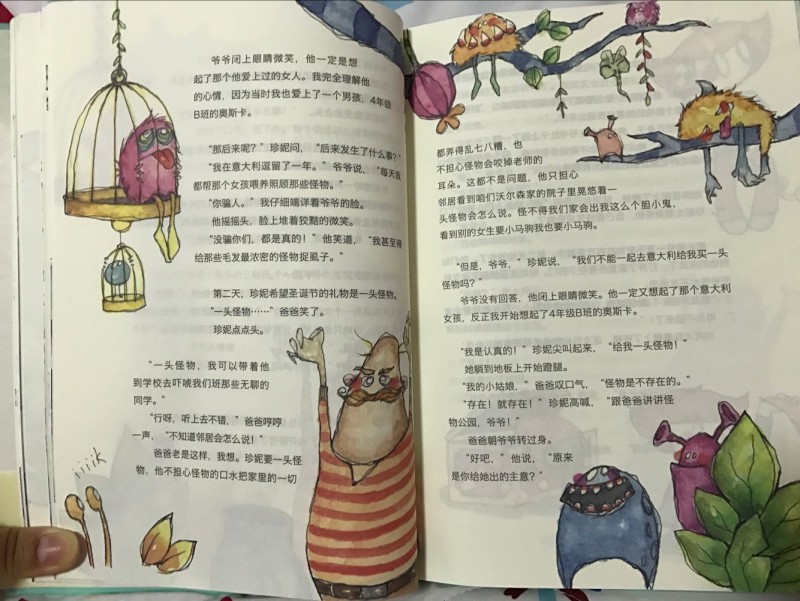 爷爷闭上眼睛微笑，他一定是想
起了那个他爱上过的女人。我完全理解他
的心情，因为当时我也爱上了一个男孩，4年级
B班的奥斯卡。
“那后来呢？”珍妮问，“后来发生了什么事？”
“我在意大利逗留了一年。”爷爷说，“每天我
都帮那个女孩喂养照顾那些怪物。”
“你骗人。”我仔细端详着爷爷的脸。
他摇摇头，脸上堆着狡黠的微笑。
“没骗你们，都是真的！”他笑道，“我甚至得
给那些毛发最浓密的怪物捉虱子。”
第二天，珍妮希望圣诞节的礼物是一头怪物。
“一头怪物……”爸爸笑了。
珍妮点点头。
“一头怪物，我可以带着他
到学校去吓唬我们班那些无聊的
同学。”
“行呀，听上去不错，”爸爸哼哼
一声，“不知道邻居会怎么说！”
爸爸老是这样，我想。珍妮要一头怪
物，他不担心怪物的口水把家里的一切
iiiik
都弄得乱七八糟，也
不担心怪物会咬掉老师的
耳朵。这都不是问题，他只担心
邻居看到咱们沃尔森家的院子里晃悠着一
头怪物会怎么说。怪不得我们家会出我这么个胆小鬼，
看到别的女生要小马驹我也要小马驹。
“但是，爷爷，”珍妮说，“我们不能一起去意大利给我买一头
怪物吗？”
爷爷没有回答，他闭上眼睛微笑。他一定又想起了那个意大利
女孩，反正我开始想起了4年级B班的奥斯卡。
“我是认真的！”珍妮尖叫起来，“给我一头怪物！”
她躺到地板上开始蹬腿。
“我的小姑娘，”爸爸叹口气，“怪物是不存在的。”
“存在！就存在！”珍妮高喊，“跟爸爸讲讲怪
物公园，爷爷！”
爸爸朝爷爷转过身。
“好吧，”他说，“原来
是你给她出的主意？”